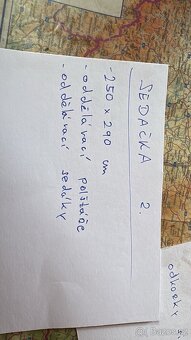 SEDAČKA 2.
- 250 x 290 cm
- oddělávací polštáře
- oddělávací sedáky
odkorky